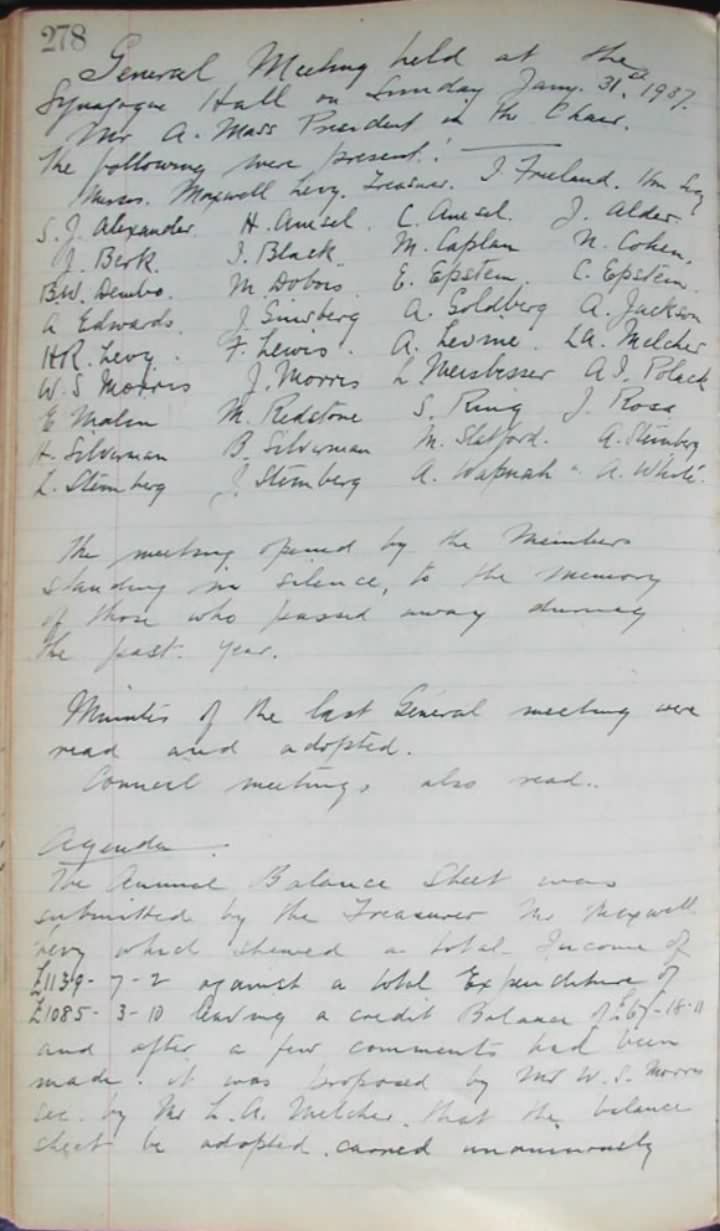 278
General Meeting held at the
Synagogue Hall on Sunday Jany. 31st 1937.
Mr A. Mass President in the Chair.
The following were present:
Messrs. Maxwell Levy. Treasurer. I Freeland. Hon Secy
S. J. Alexander. H. Amsel. C. Amsel. J. Alder.
J. Berk. I. Black. M. Caplan N. Cohen.
B.W. Dembo. M. Dobois. E. Epstein. C. Epstein.
A Edwards. J Ginsberg A. Goldberg A. Jackson
H.R. Levy. F. Lewis. A. Levine. L.A. Melcher
W. S Morris J. Morris L A. I. Polack
E Malin M. Redstone S. Ring J. Rose
H. Silverman B. Silverman M. Slatford. A. Steinberg
L. Steinberg J. Steinberg A. Wapnah A. White.
The meeting opened by the Members
standing in silence, to the memory
of those who passed away during
the past year.
Minutes of the last General meeting were
read and adopted.
Council meetings also read..
Agenda.
The Annual Balance Sheet was
submitted by the Treasurer Mr Maxwell
Levy which shewed a total Income of
£1139-7-2 against a total Expenditure of
£1085-3-10 leaving a credit Balance of
and after a few comments had been
made. it was proposed by Mr W. S. Morris
sec. by Mr L. A. Melcher. that the balance
sheet be adopted. carried unanimously